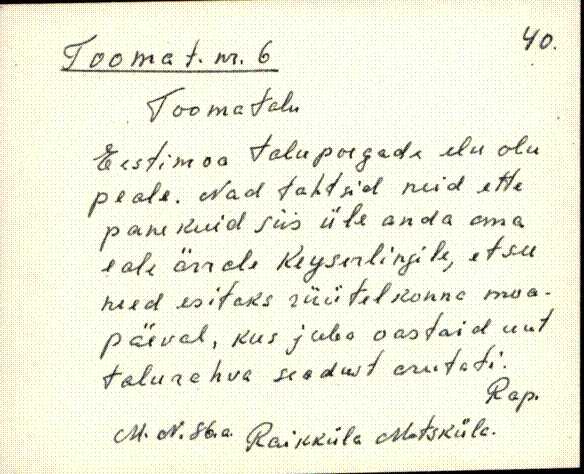 40.
Tooma t. nr. 6
Toomatalu
Eestimaa talupoegade elu olu
peale. Nad tahtsid neid ette
panekuid siis üle anda oma
eale ärrale Keyserlingile, et see
need esitaks rüütelkonna maa-
päeval, kus juba aastaid uut
talurahva seadust arutati.
Rap.
M. N. 86.a. Raikküla Metsküla.